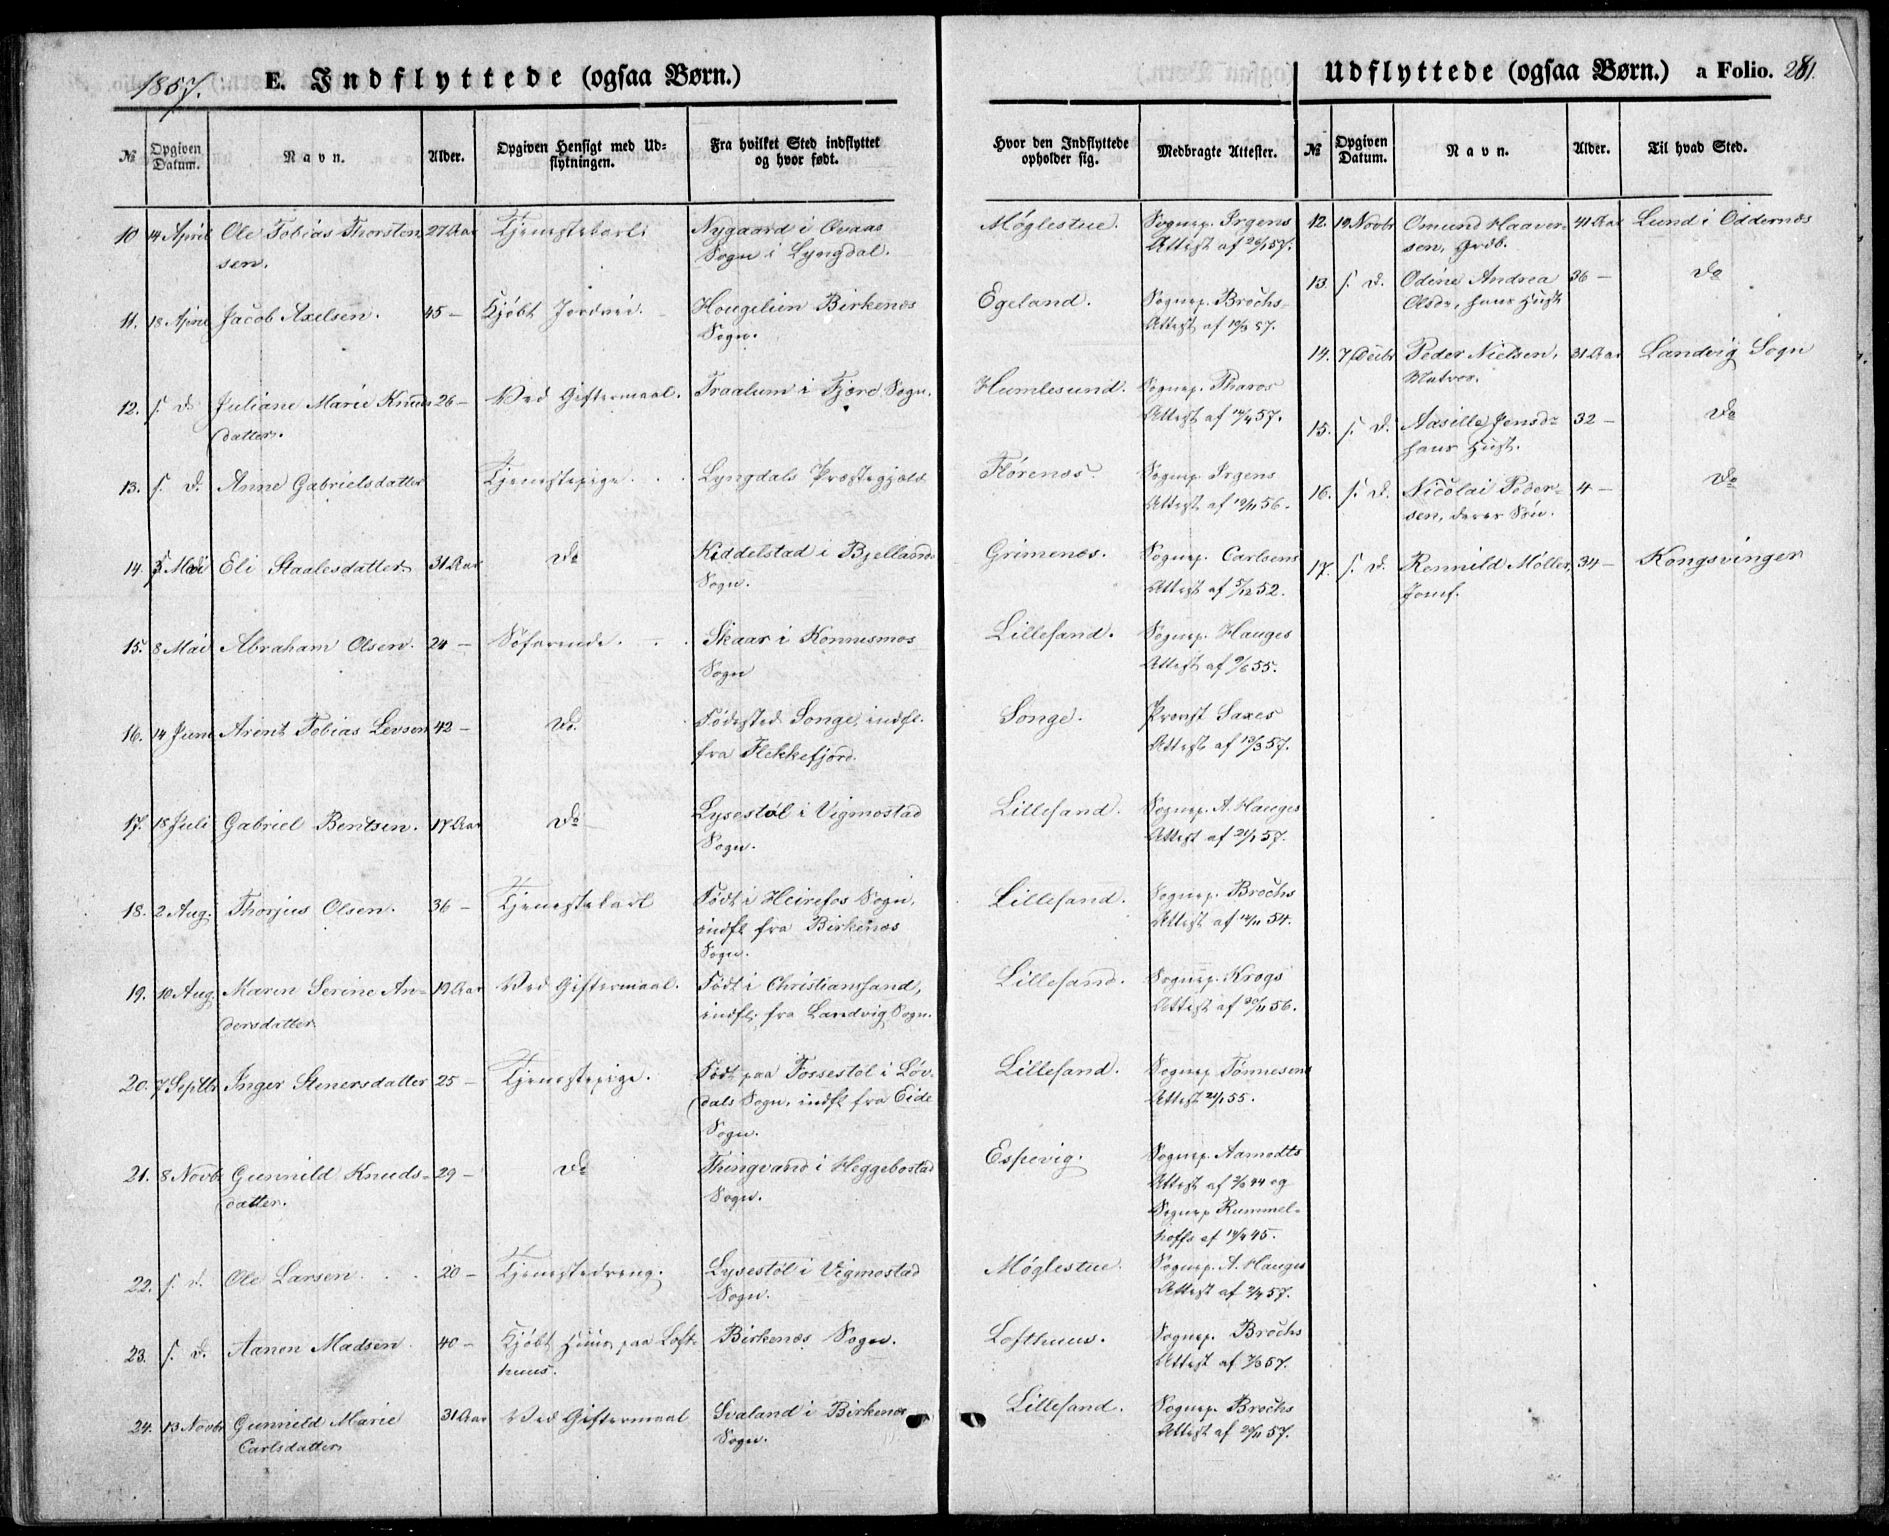 1857. E. Indflyttede (ogsaa Børn.)
№ | Opgiven Datum. | Navn. | Alder. | Opgiven Hensigt med Udflytningen. | Fra hvilket Sted indflyttet og hvor født. | Hvor den Indflyttede opholder sig. | Medbragte Attester.
10 | 14 April | Ole Tobias Thorsten | 27 Aar | Tjenestekarl | Nygaard i Qvaas | Møglestue. | Sognep. Irgens
sen. | Sogn i Lyngdal. | Attest af 57.
11. | 18 April | Jacob Axelsen. | 45 – | Kjøbt Jordvei. | Hougelien Birkenæs | Egeland. | Sognep. Brochs
Sogn. | Attest af 57.
12. | s. d. | Juliane Marie Knuds | 26 – | Ved Giftermaal. | Traalum i Fjære Sogn. | Humlesund. | Sognep. Tharos
datter. | Attest af 14/4 57.
13. | s. d. | Anne Gabrielsdatter | Tjenestepige | Lyngdals Præstegjæld | Flørenæs. | Sognep. Irgens
Attest af 19/11 56.
14. | Mai | Eli Staalesdatter | 31 Aar | Do | Kiddelstad i Bjellands | Grimenæs. | Sognep. Carlsens
Sogn. | Attest af 5/12 52.
15. | 8 Mai | Abraham Olsen. | 24 – | Søfarende. | Skaar i Konnismos | Lillesand. | Sognep. Hauges
Sogn | Attest af 9/6 55.
16. | 14 Juni | Arent Tobias Levsen | 42 – | Do | Fødested Songe, indfl. | Songe. | Provst Saxes
fra Flekkefjord. | Attest af 13/3 57.
17. | 18 Juli | Gabriel Bentsen. | 17 Aar | Do | Lysestøl i Vigmostad | Lillesand. | Sognep. A. Hauges
Sogn. | Attest af 21/1 57.
18. | 2 Aug. | Thorjus Olsen. | 36 – | Tjenestekarl | Født i Heirefos Sogn, | Lillesand. | Sognep. Brochs
indfl. fra Birkenæs | Attest af 14/11 54.
Sogn.
19. | 10 Aug. | Maren Serine An- | 19 Aar | Ved Giftermaal. | Født i Christiansand, | Lillesand. | Sognep. Krogs
dersdatter | indfl. fra Landvig Sogn. | Attest af 20/11 56.
20. | 7 Septbr | Inger Stenersdatter | 25 – | Tjenestepige. | Født paa Fossestøl i Løv- | Lillesand. | Sognep. Tønnesens
dals Sogn, indfl. fra Eide | Attest 21/1 55.
Sogn.
21. | 8 Novbr | Gunnild Knuds- | 29 – | Do | Thingvand i Heggebostad | Espevig. | Sognep. Aamodts
datter. | Sogn. | Attest af 44 og
Sognep. Rummel-
hoffs af 14/4 45.
22. | s. d. | Ole Larsen | 20 – | Tjenestedreng. | Lysestøl i Vigmostad | Møglestue. | Sognep. A. Hauges
Sogn. | Attest af 57.
23. | s. d. | Aanon Madsen | 40 – | Kjøbt Huus paa Loft- | Birkenæs Sogn. | Lofthuus. | Sognep. Brochs
huus. | Attest af 57.
24. | 13 Novbr | Gunnild Marie | 31 Aar | Ved Giftermaal | Svaland i Birkenæs | Lillesand. | Sognep. Brochs
Carlsdatter | Sogn. | Attest af 57.
Udflyttede (ogsaa Børn.) a Folio. 281.
№ | Opgiven Datum. | Navn. | Alder. | Til hvad Sted.
12. | 19 Novbr | Omund Haaver- | 41 Aar | Lund i Oddernæs
sen, Grdb.
13. | s. d. | Odine Andrea | 36 – | Do
Olsdr, hans Hust
14. | 7 Decbr | Peder Nielsen, | 31 Aar | Landvig Sogn
Matros.
15. | s. d. | Aasille Jensdr | 32 – | Do
hans Hust.
16. | s. d. | Nicolai Peder- | 4 – | Do
sen, deres Søn.
17. | s. d. | Ronnild Møller, | 34 – | Kongsvinger
Jomf.